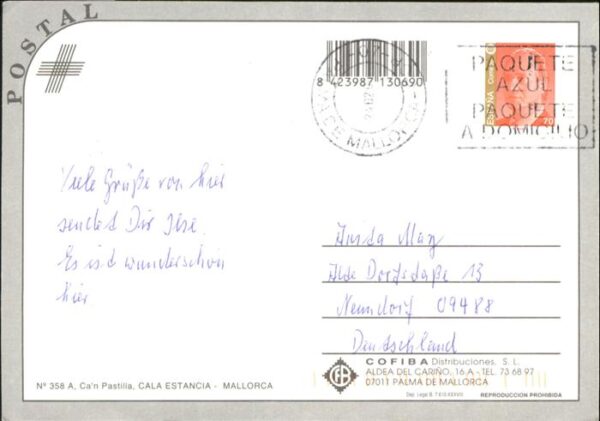 POSTAL
8 423987 130690
MALLORCA
PAQUETE
AZUL
PAQUETE
A DOMICILIO
ESPAÑA
70
Viele Grüße von hier
sendet Dir Ilse.
Es ist wunderschön
hier
Alte Dorfstraße 13
Neundorf 09488
Deutschland
COFIBA Distribuciones, S. L.
ALDEA DEL CARIÑO, 16 A - TEL. 73 68 97
07011 PALMA DE MALLORCA
Nº 358 A, Ca'n Pastilla, CALA ESTANCIA - MALLORCA
REPRODUCCION PROHIBIDA